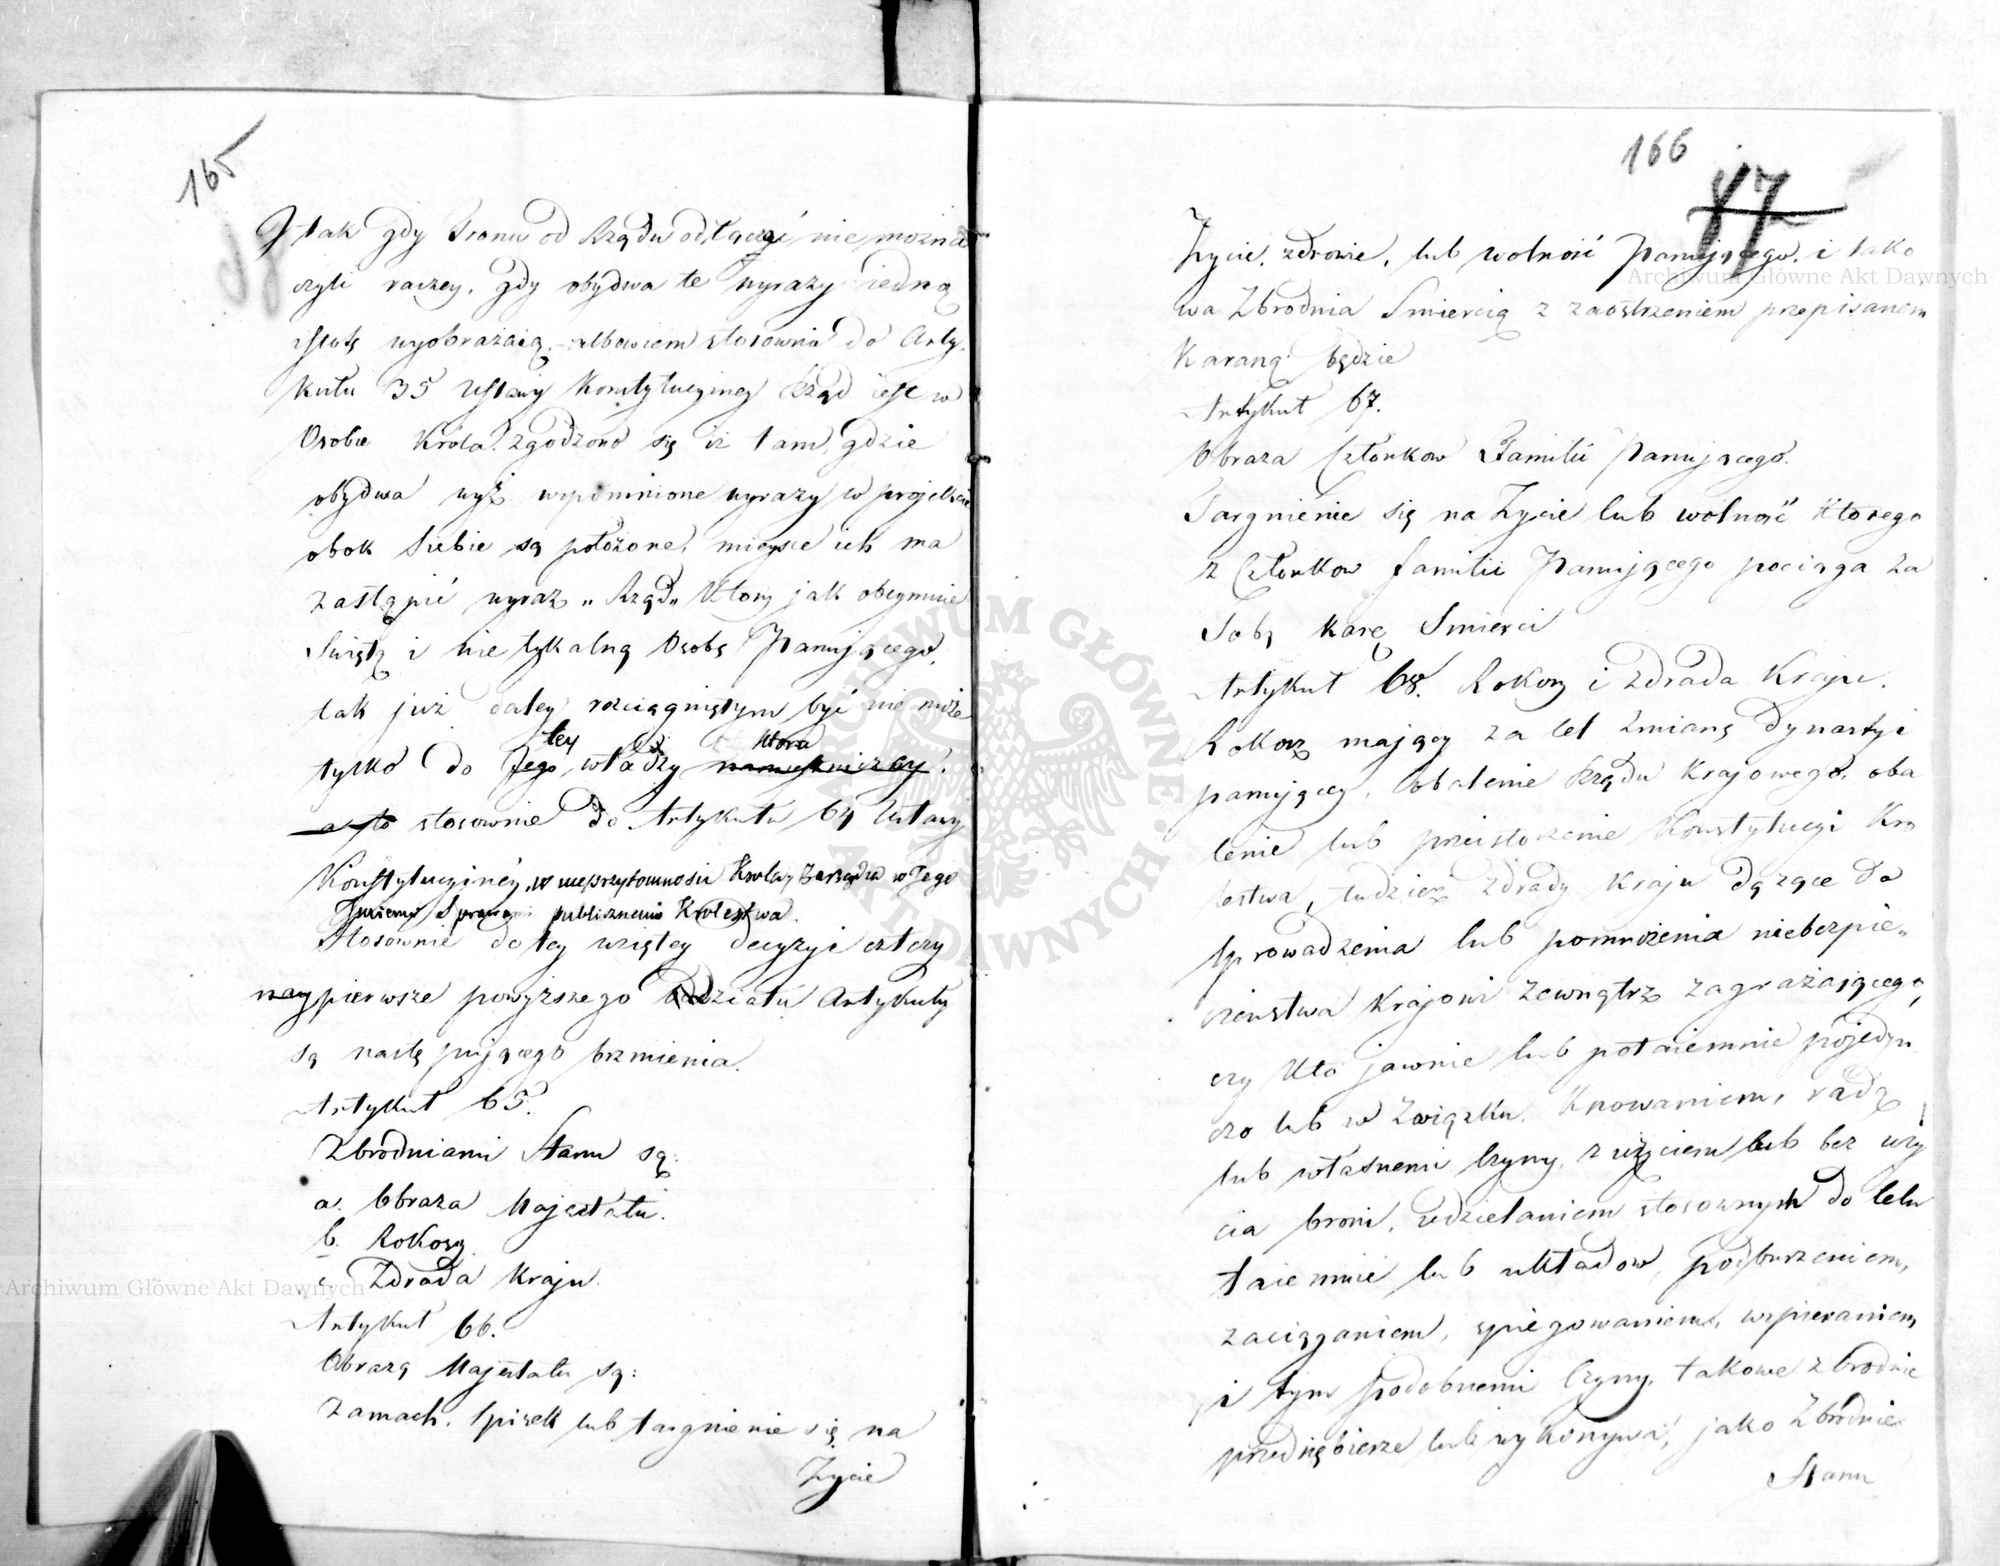 165
I tak gdy Tronu od Rządu odłączyć nie można
czyli raczey, gdy obydwa te wyrazy iedną
istotę wyobrażaią, albowiem stosownie do Arty
kułu 35 Ustawy Konstytucyiney Rząd iest w
Osobie Króla. Zgodzono się iż tam, gdzie
obydwa wyż wspomnione wyrazy w projekcie
obok siebie są położone, mieysce ich ma
zastąpić wyraz „Rząd„ Który jak obeymuie
Świętą i nietykalną Osobę Panującego,
tak już daley rozciągniętym być nie może
tylko do Jego tey władzy która
a to stosownie do Artykułu 64 Ustawy
Konstytucyiney, w nieprzytomności Krola, Zarządza w Jego
Imieniu Sprawami publicznemi Krolestwa.
Stosownie do tey wziętey decyzyi cztery
naypierwsze powyższego Oddziału Artykuły
są następującego brzmienia.
Artykuł 65.
Zbrodniami Stanu są:
a. Obraza Majestatu.
b. Rokosz
c. Zdrada Kraju.
Artykuł 66.
Obrazą Majestatu są:
Zamach, Spisek lub targnienie się na
Życie
166
87
Życie, zdrowie, lub wolność Panującego, i tako
wa Zbrodnia Śmiercią z zaostrzeniem przepisanem
Karaną będzie
Artykuł 67.
Obraza Członkow Familii Panującego.
Targnienie się na Życie lub wolność Ktorego
z Członkow familii Panującego pociąga za
Sobą karę Śmierci
Artykuł 68. Rokosz i Zdrada Kraju.
Rokosz mający za cel Zmianę Dynastyi
panującey, Obalenie Rządu Krajowego, oba
lenie lub przeistoczenie Konstytucyi Kro
lestwa, tudzież Zdrady Kraju dążące do
Sprowadzenia lub pomnożenia niebezpie„
czeństwa Krajowi Zewnątrz zagrażającego,
czy Kto jawnie lub potaiemnie pojedyn
czo lub w Związku, Knowaniem, radą
lub własnemi Czyny, z użyciem lub bez uży
cia broni, udzielaniem stosownych do Celu
taiemnic lub układow, podburzeniem,
zaciąganiem, spiegowaniem, wspieraniem
i tym podobnemi Czyny, takowe zbrodnie
przedsiębierze lub wykonywa, jako Zbrodnie
Stanu
Archiwum Główne Akt Dawnych
Archiwum Główne Akt Dawnych
ARCHIWUM GŁÓWNE AKT DAWNYCH